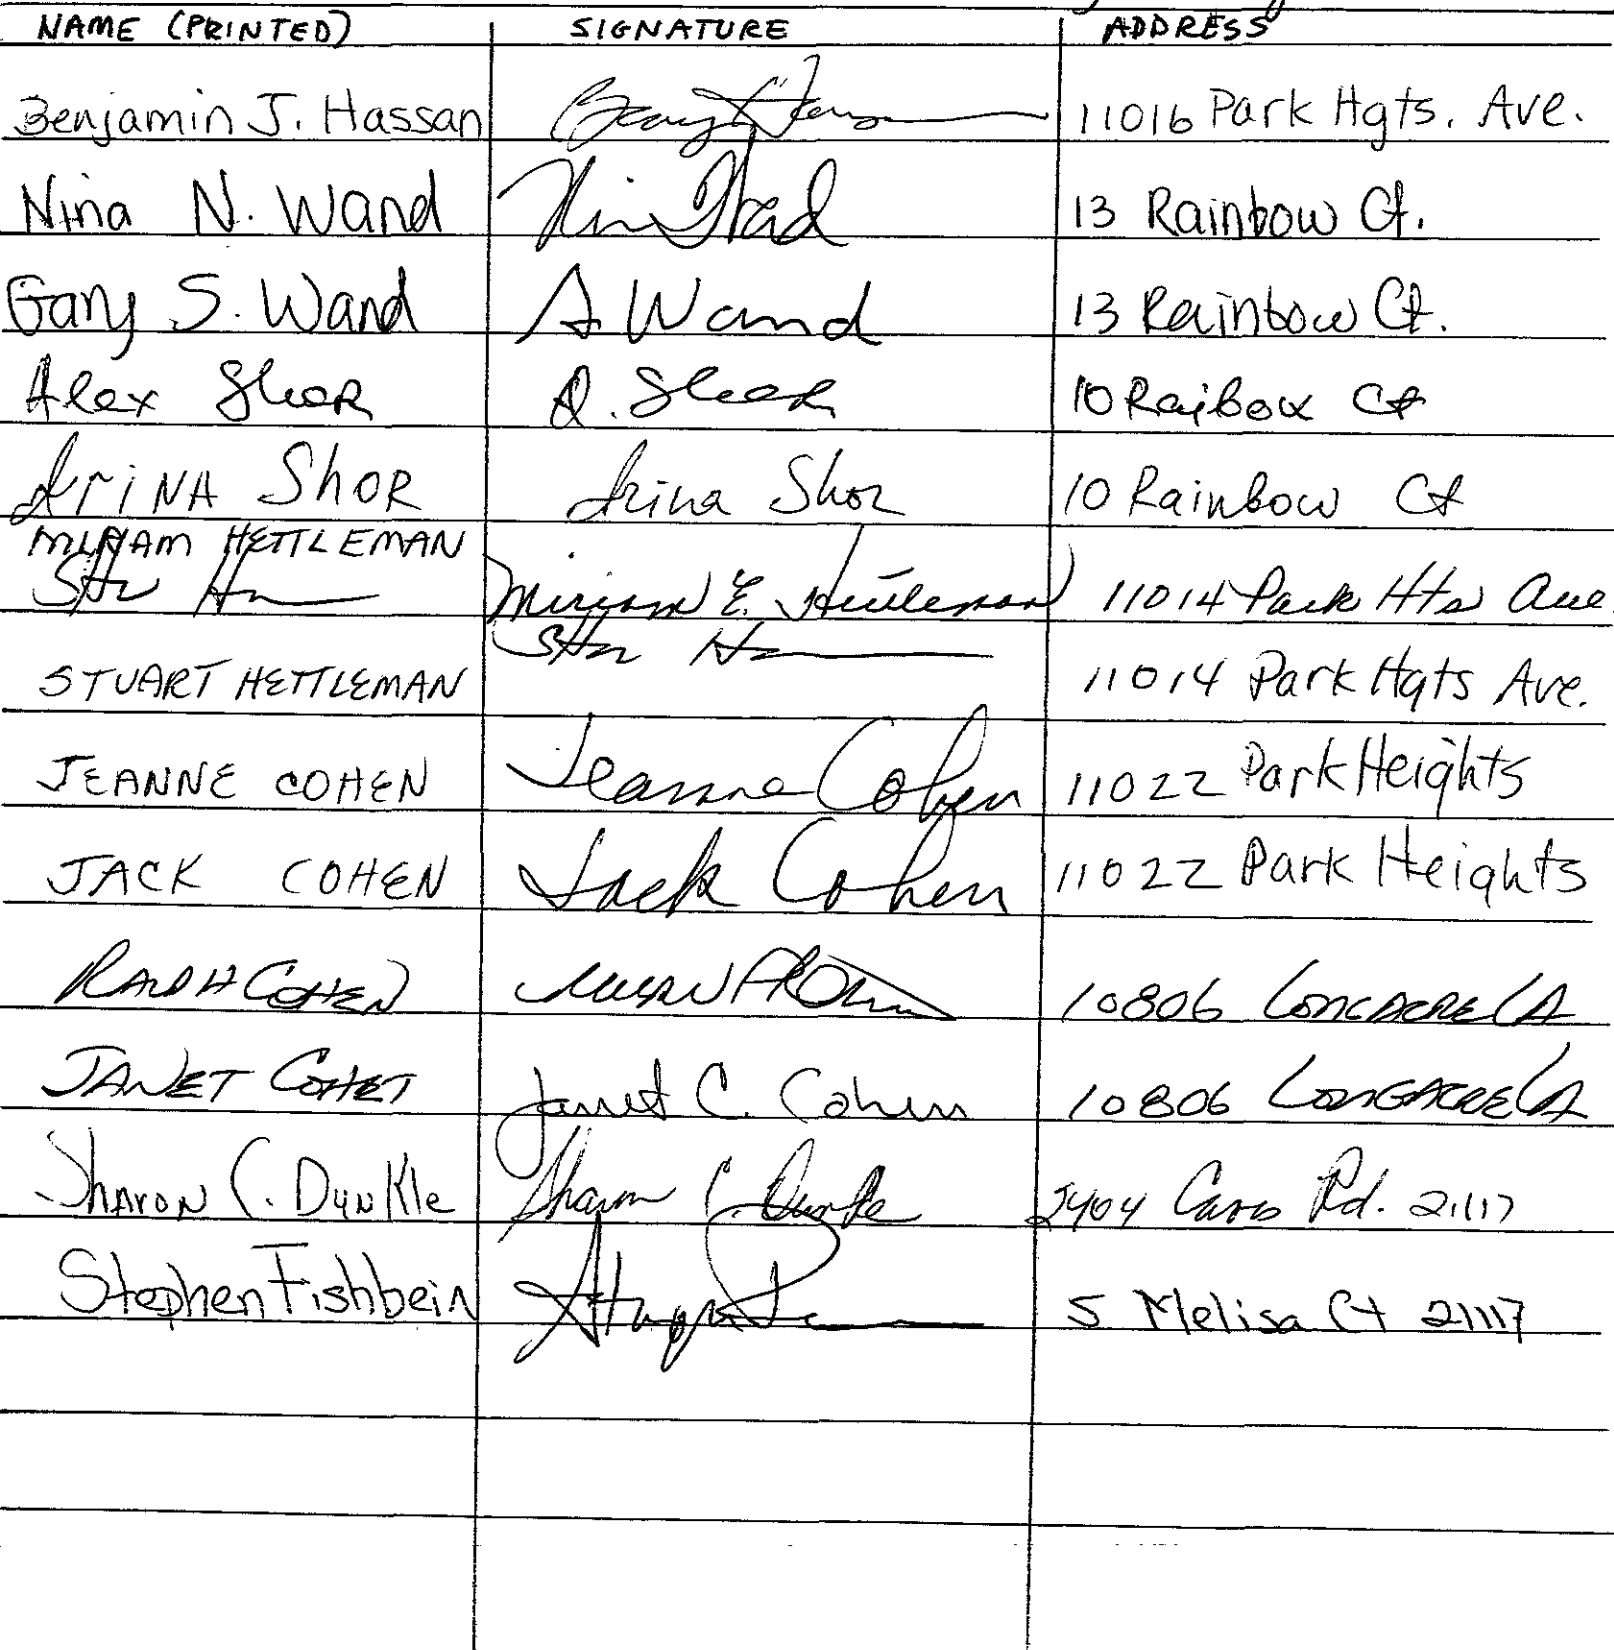 NAME (PRINTED) SIGNATURE ADDRESS
Benjamin J. Hassan 11016 Park Hgts. Ave.
Nina N. Wand 13 Rainbow Ct.
Gary S. Wand S. Wand 13 Rainbow Ct.
Alex Shor A. Shor 10 Raibow Ct
Irina Shor Irina Shor 10 Rainbow Ct
MIRIAM HETTLEMAN
Miriam E. Hettleman 11014 Park Hts Ave.
STUART HETTLEMAN 11014 Park Hgts Ave.
JEANNE COHEN Jeanne Cohen 11022 Park Heights
JACK COHEN Jack Cohen 11022 Park Heights
RALPH COHEN 10806 LONGACRE LA
JANET COHET Janet C. Cohen 10806 LONGACRE LA
Sharon C. Dunkle Sharon C. Dunkle Rd. 21117
Stephen Fishbein 5 Melisa Ct 21117